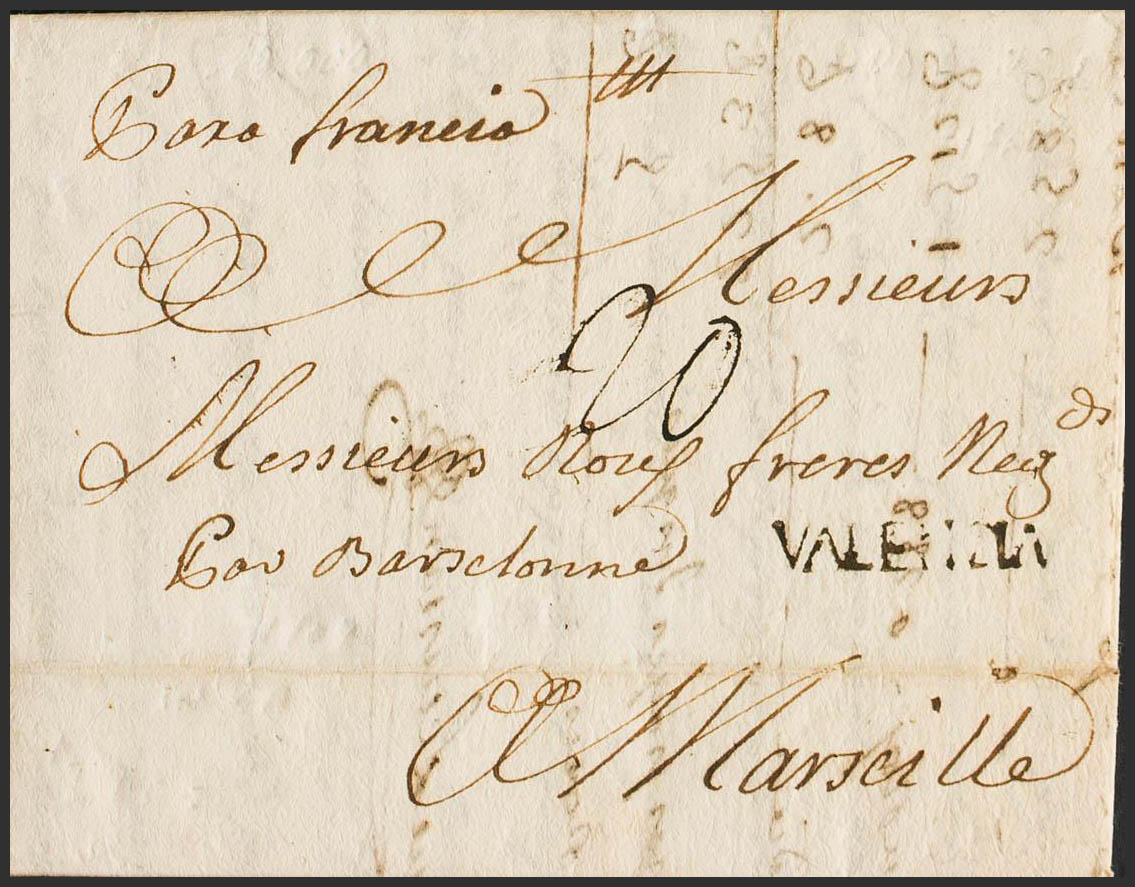 Para francia
A Messieurs
20
Messieurs Roux freres Neg.ds
Par Barselonne
VALENCIA
A Marseille